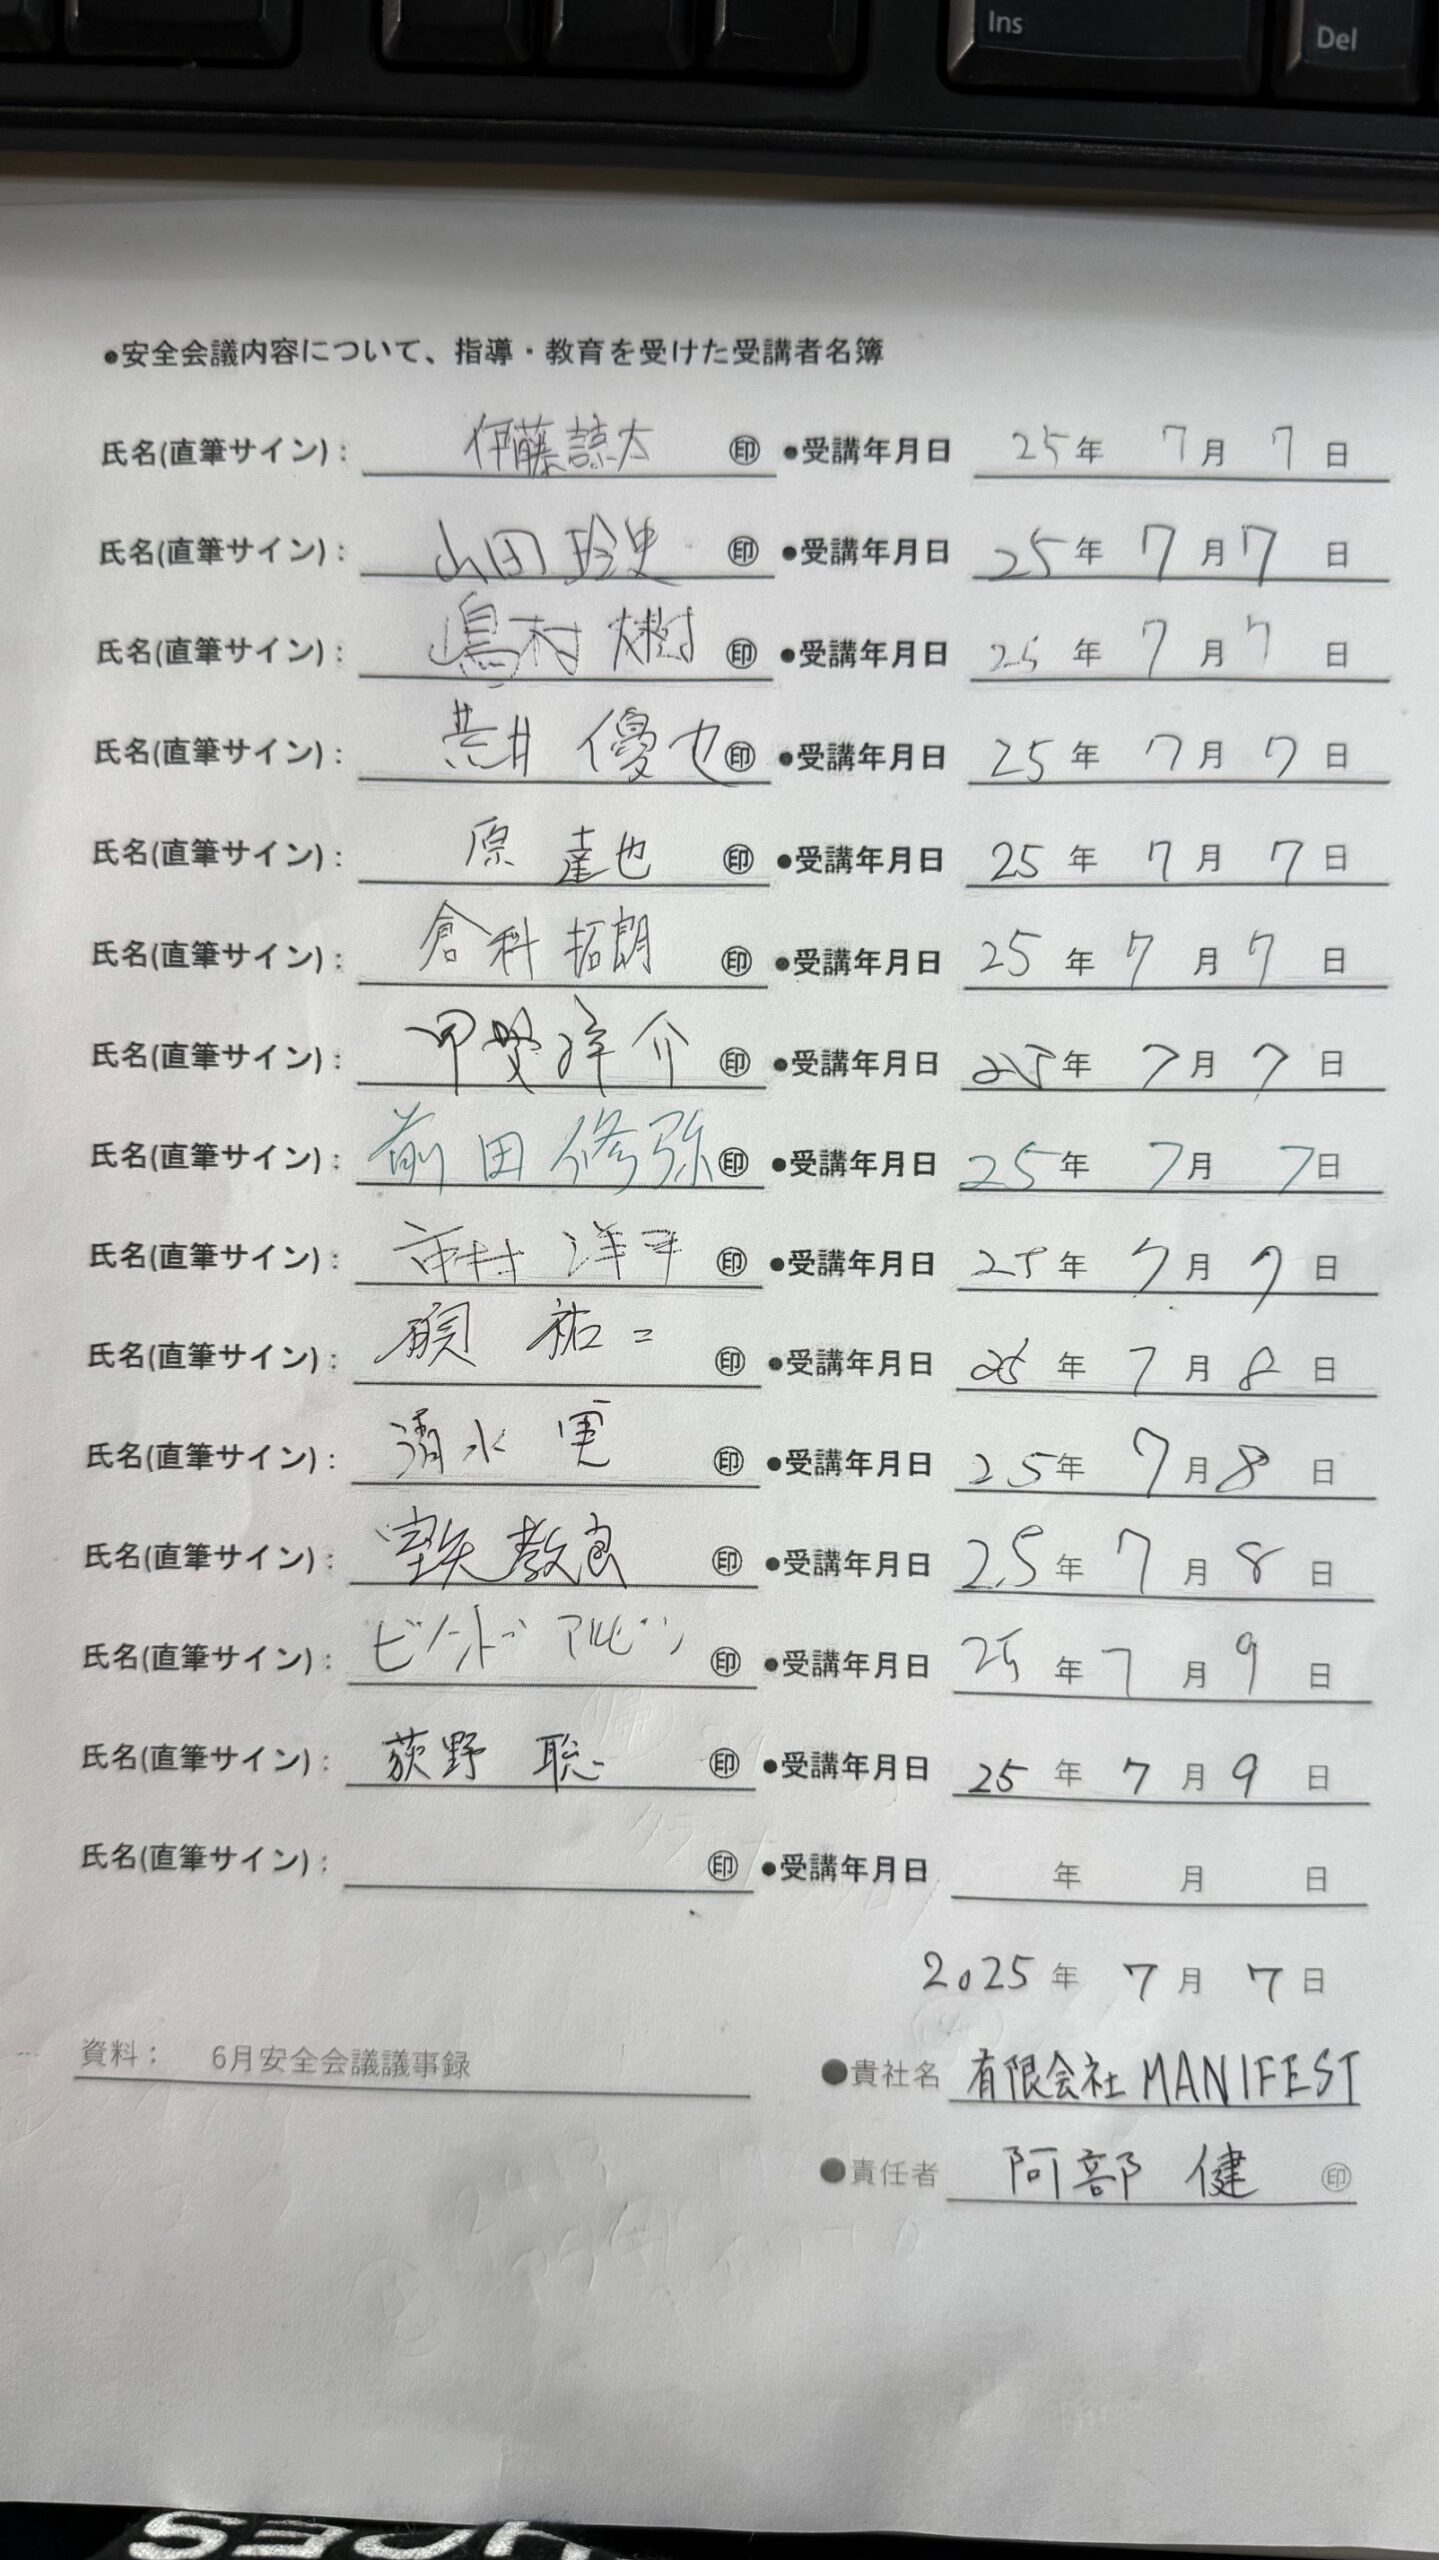 Ins
Del
●安全会議内容について、指導・教育を受けた受講者名簿
氏名(直筆サイン): 伊藤諒太 ㊞ ●受講年月日 25年 7月 7日
氏名(直筆サイン): 山田玲史 ㊞ ●受講年月日 25年 7月 7日
氏名(直筆サイン): 嶋村 樹 ㊞ ●受講年月日 25年 7月 7日
氏名(直筆サイン): 荒井 優也 ㊞ ●受講年月日 25年 7月 7日
氏名(直筆サイン): 原 達也 ㊞ ●受講年月日 25年 7月 7日
氏名(直筆サイン): 倉科 拓朗 ㊞ ●受講年月日 25年 7月 7日
氏名(直筆サイン): 甲斐洋介 ㊞ ●受講年月日 25年 7月 7日
氏名(直筆サイン): 前田 修弥 ㊞ ●受講年月日 25年 7月 7日
氏名(直筆サイン): 市村 洋平 ㊞ ●受講年月日 25年 7月 7日
氏名(直筆サイン): 祐二 ㊞ ●受講年月日 25年 7月 8日
氏名(直筆サイン): 清水 ㊞ ●受講年月日 25年 7月 8日
氏名(直筆サイン): 室矢 教良 ㊞ ●受講年月日 25年 7月 8日
氏名(直筆サイン): ㊞ ●受講年月日 25年 7月 9日
氏名(直筆サイン): 荻野 聡 ㊞ ●受講年月日 25年 7月 9日
氏名(直筆サイン): ㊞ ●受講年月日 年 月 日
2025年 7月 7日
資料： 6月安全会議議事録
●貴社名 有限会社 MANIFEST
●責任者 阿部 健 ㊞